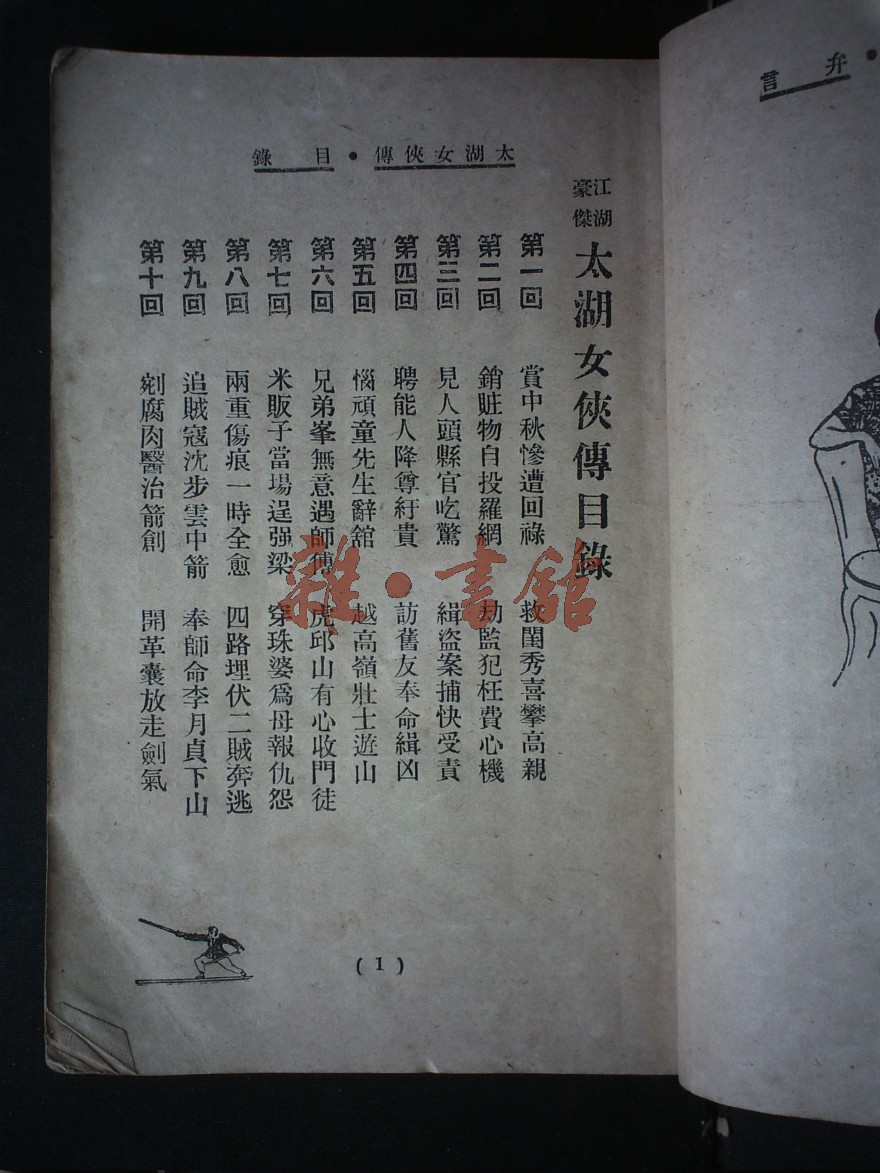 太湖女俠傳•目錄
江湖豪傑
太湖女俠傳目錄
第一回 賞中秋慘遭回祿 救閨秀喜攀高親
第二回 銷贓物自投羅網 劫監犯枉費心機
第三回 見人頭縣官吃驚 緝盜案捕快受責
第四回 聘能人降尊紆貴 訪舊友奉命緝凶
第五回 惱頑童先生辭舘 越高嶺壯士遊山
第六回 兄弟峯無意遇師傅 虎邱山有心收門徒
第七回 米販子當場逞强梁 穿珠婆爲母報仇怨
第八回 兩重傷痕一時全愈 四路埋伏二賊奔逃
第九回 追賊寇沈步雲中箭 奉師命李月貞下山
第十回 剜腐肉醫治箭創 開革囊放走劍氣
(1)
•弁言
雜•書舘